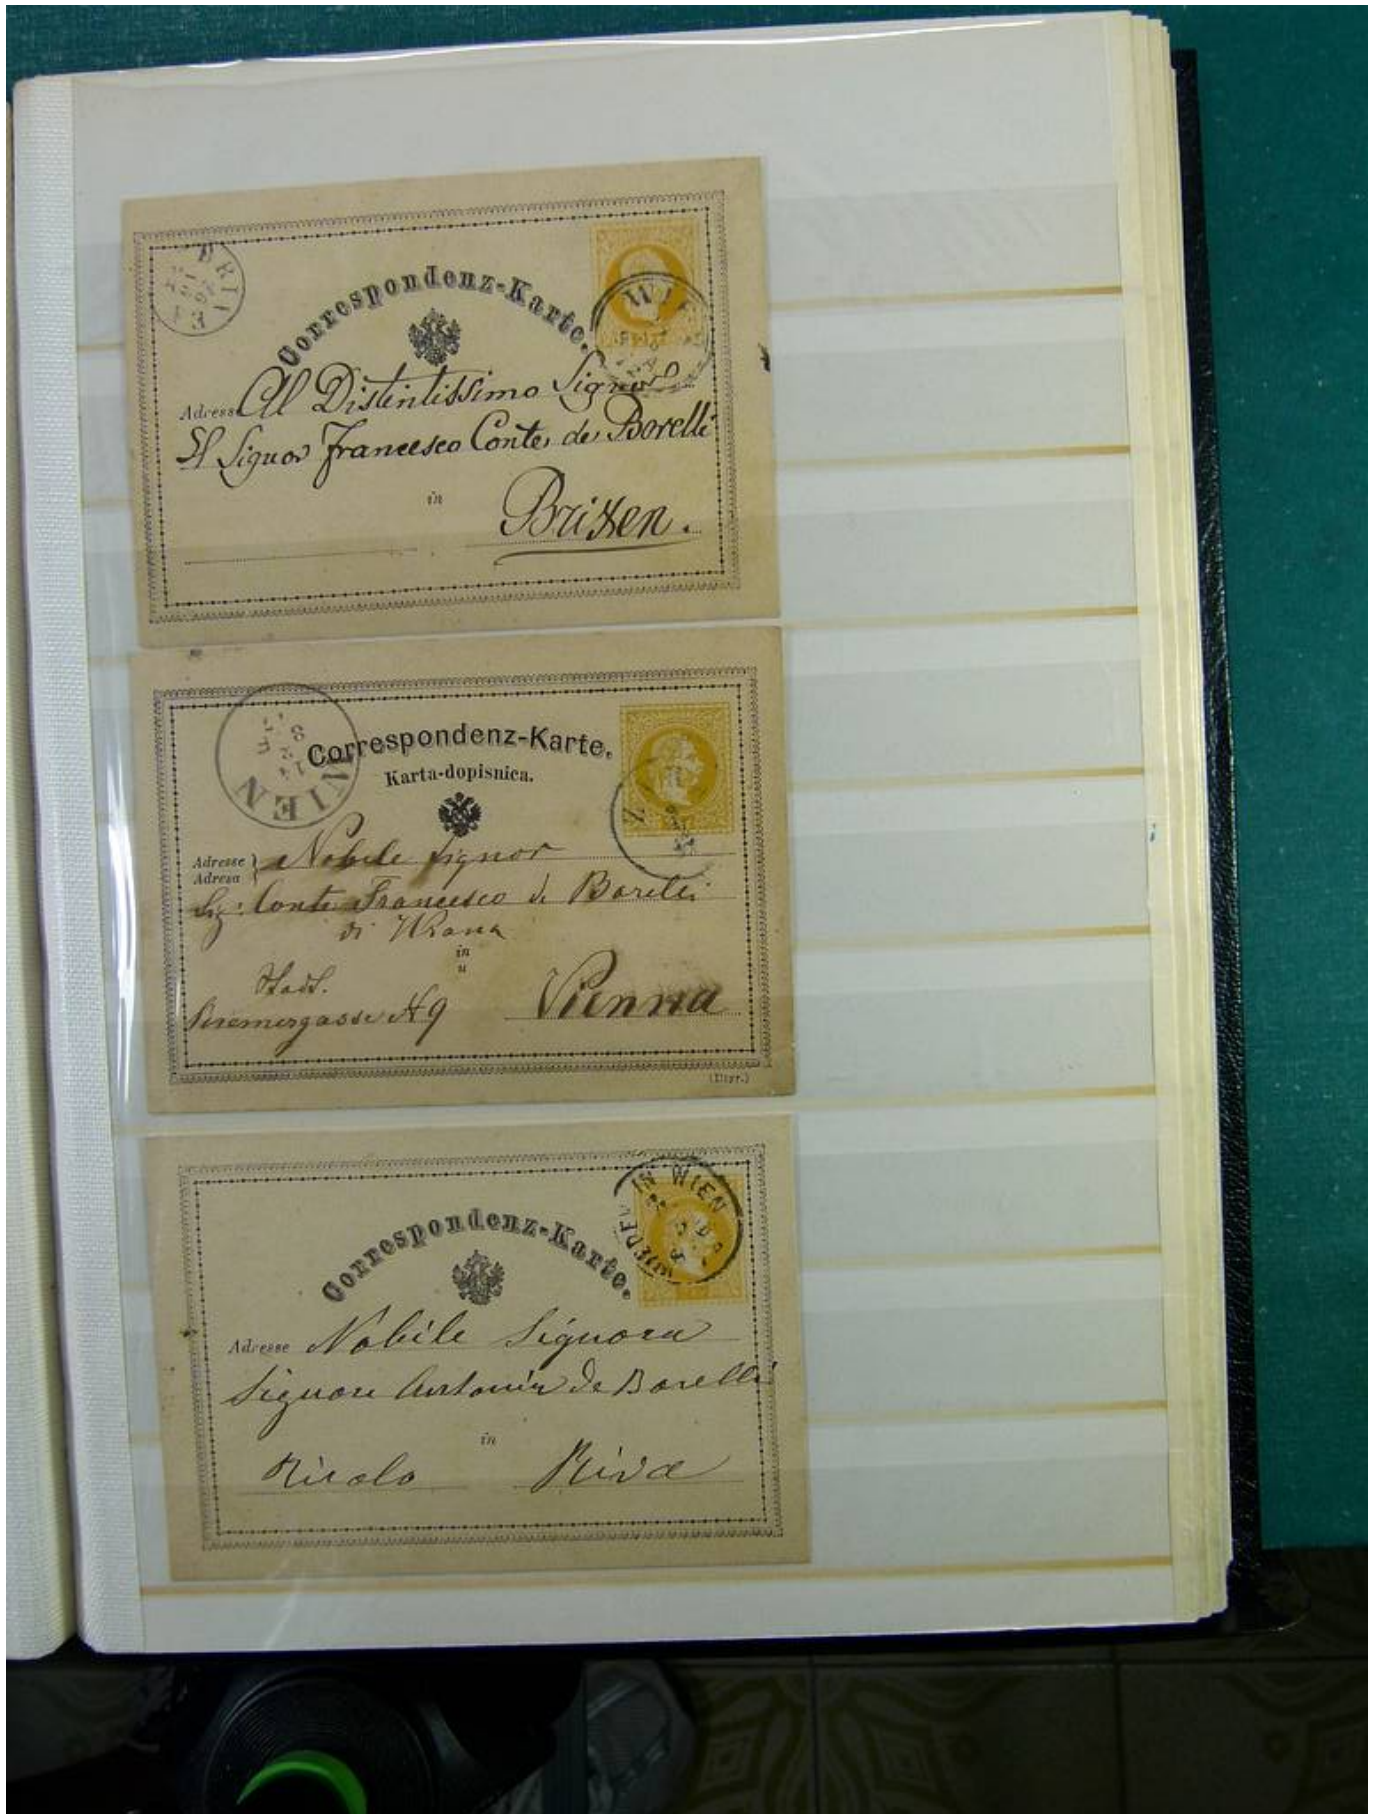 Correspondenz-Karte.
WI
Adresse Al Distintissimo Signor
Il Signor Francesco Conte de Borelli
in
Brixen.
WIEN
Correspondenz-Karte.
Karta-dopisnica.
Adresse
Adresa
Nobile Signor
Sig: Conte Francesco de Borelli
di Wrana
in
u
Stadt.
N 9
Vienna
(Illyr.)
WIEN
Correspondenz-Karte.
Adresse Nobile Signora
de Borelli
in
Riva